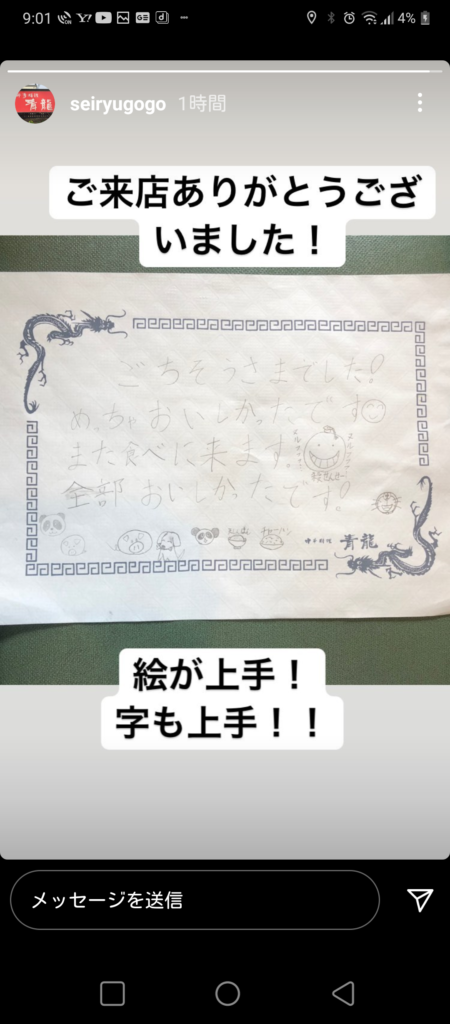 9:01
4%
seiryugogo 1時間
ご来店ありがとうござ
いました！
ごちそうさまでした!
めっちゃおいしかったです
また食べに来ます。
全部、おいしかったです。!
青龍
絵が上手！
字も上手！！
メッセージを送信